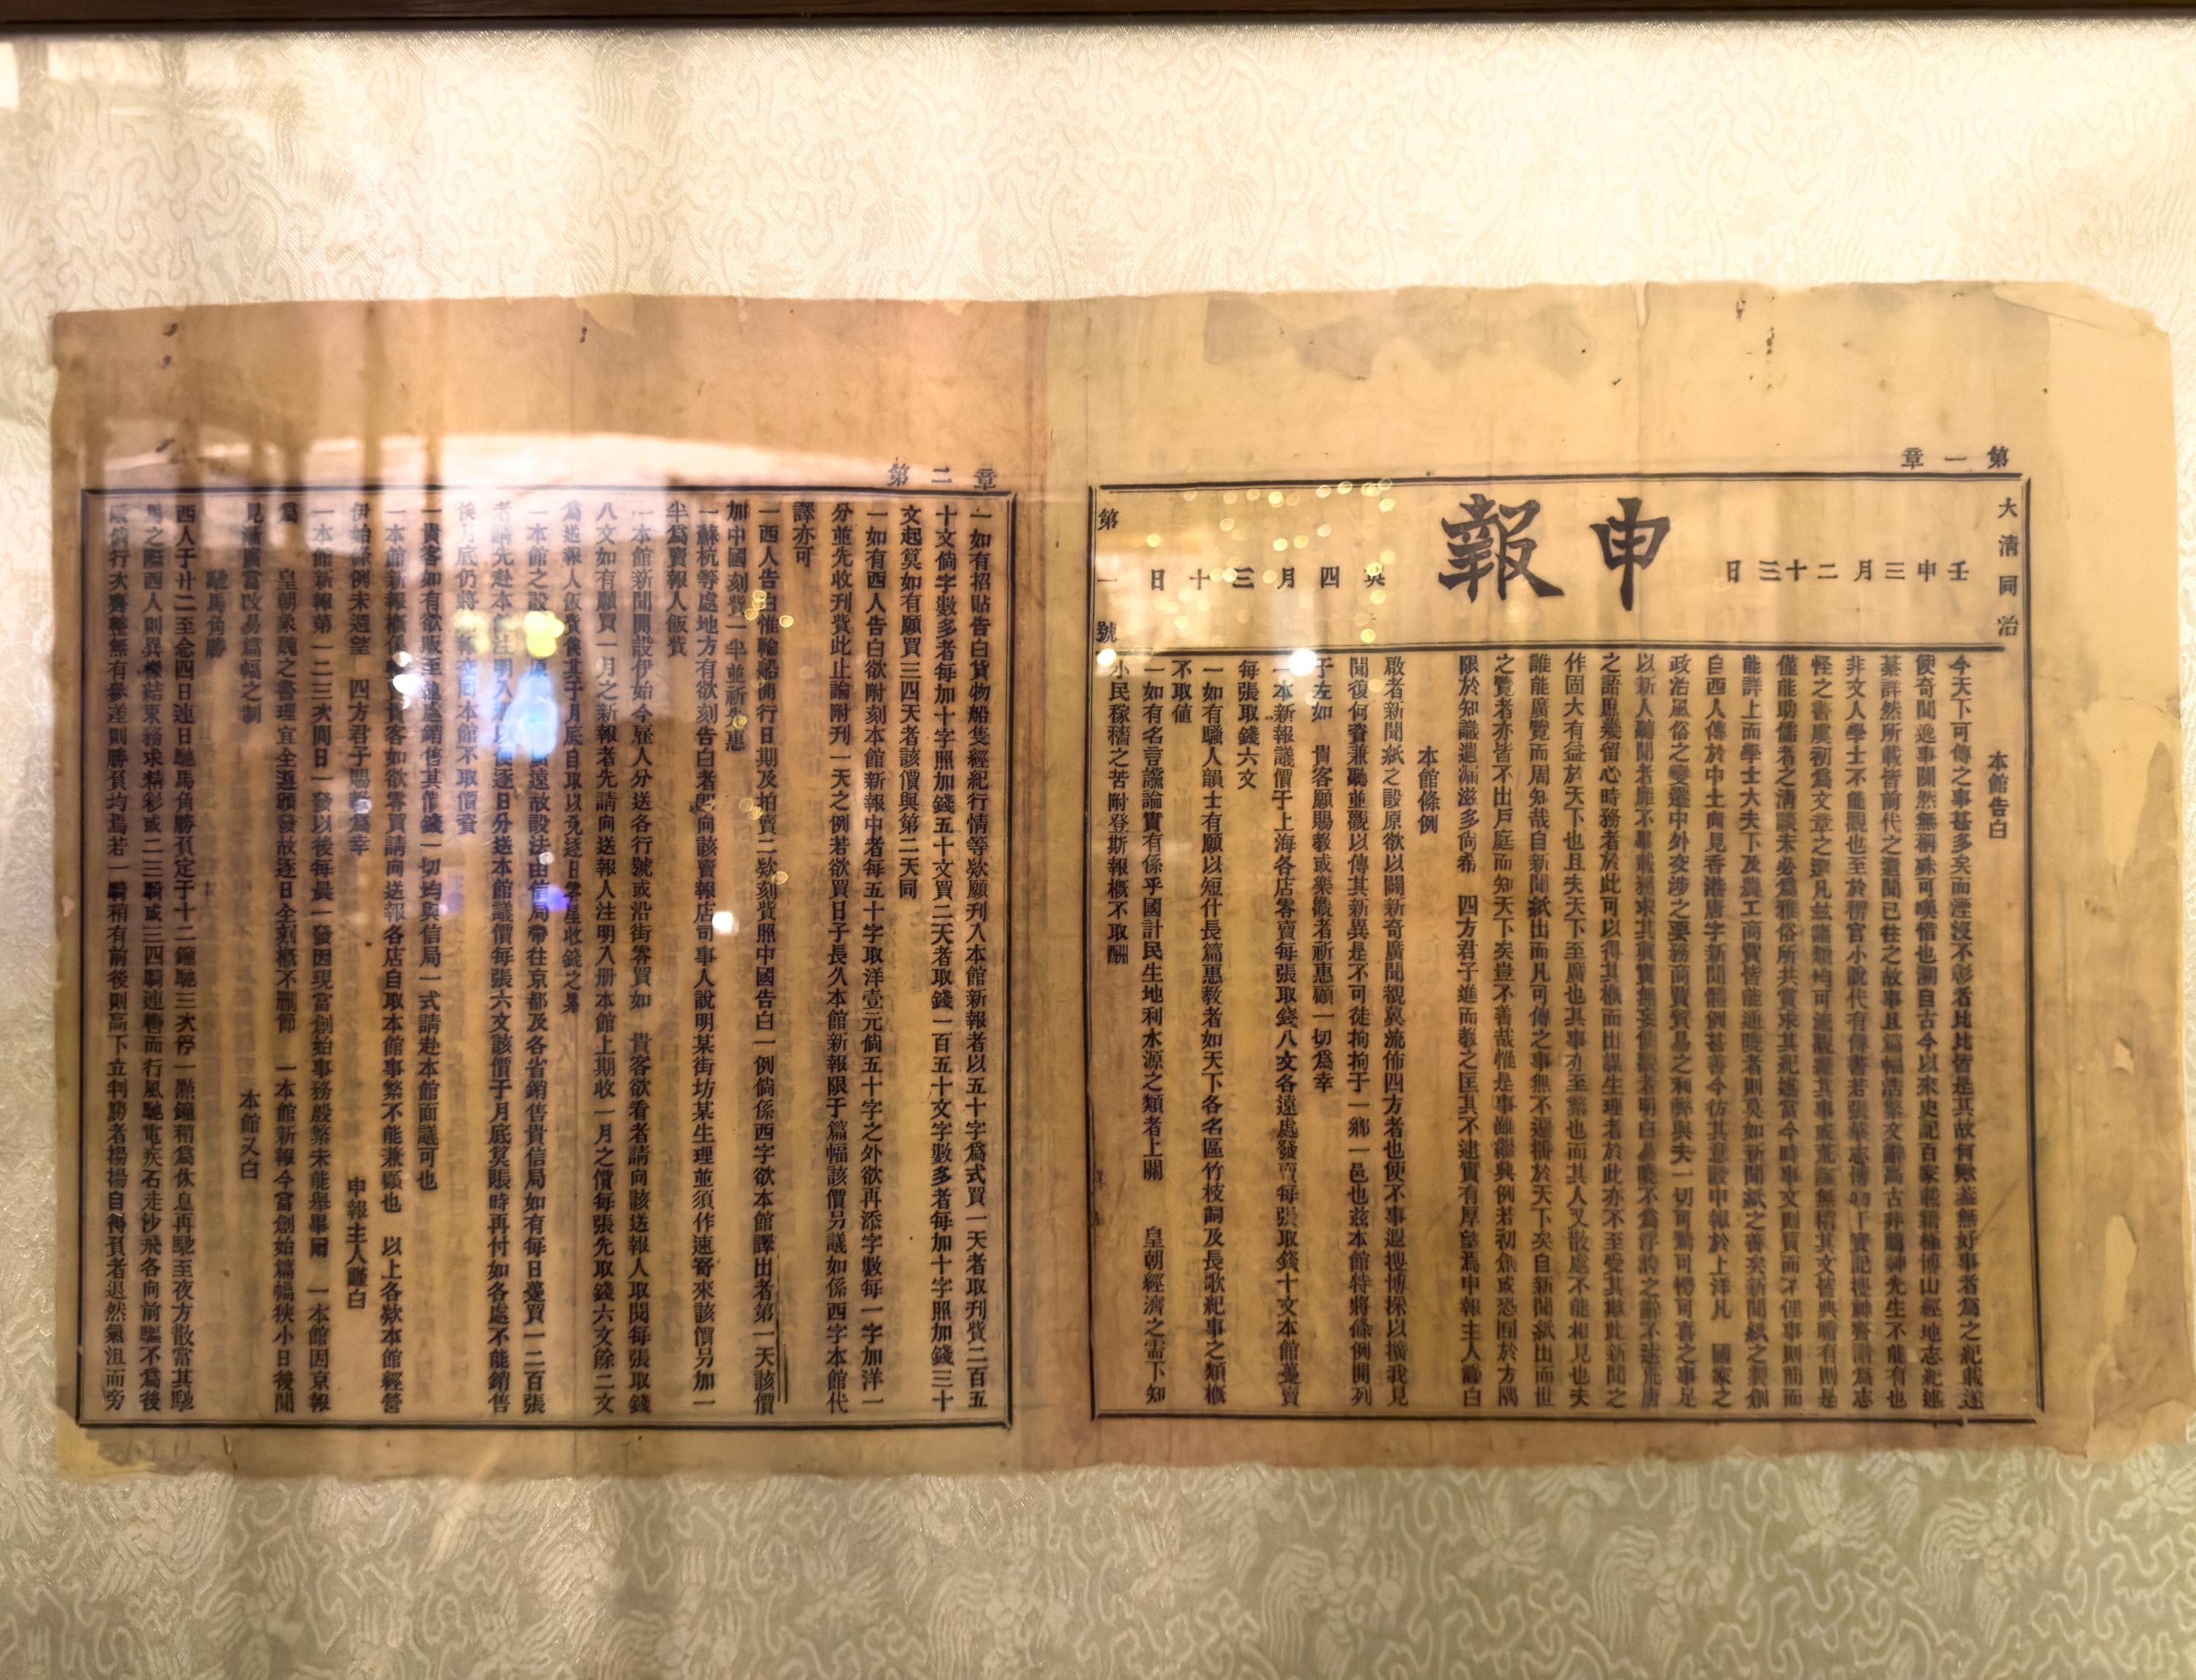 第一章
大清同治
壬申三月二十三日
申報
英四月三十日
第一號
本館告白
今天下可傳之事甚多矣而湮沒不彰者比比皆是其故何歟蓋無好事者爲之紀載遂
使奇聞逸事闃然無稱殊可嘆惜也溯自古今以來史記百家載籍極博山經地志紀述
綦詳然所載皆前代之遺聞已往之故事且篇幅浩繁文辭高古非薦紳先生不能有也
非文人學士不能觀也至於稗官小說代有傳書若張華志博物干寶記搜神齊諧爲志
怪之書虞初爲文章之選凡茲諸類均可流觀維其事或荒誕無稽其文皆典贍有則是
僅能助儒者之清談未必爲雅俗所共賞求其紀述當今時事文則質而不俚事則簡而
能詳上而學士大夫下及農工商賈皆能通曉者則莫如新聞紙之善矣新聞紙之製創
自西人傳於中土向見香港唐字新聞體例甚善今仿其意設申報於上洋凡　國家之
政治風俗之變遷中外交涉之要務商賈貿易之利弊與夫一切可驚可愕可喜之事足
以新人聽聞者靡不畢載務求其真實無妄使觀者明白易曉不爲浮誇之辭不述荒唐
之語庶幾留心時務者於此可以得其概而出謀生理者於此亦不至受其欺此新聞之
作固大有益於天下也且夫天下至廣也其事亦至繁也而其人又散處不能相見也夫
誰能廣覽而周知哉自新聞紙出而凡可傳之事無不遍播於天下矣自新聞紙出而世
之覽者亦皆不出戶庭而知天下矣豈不善哉惟是事雖繼興例若初創或恐囿於方隅
限於知識遺漏滋多尚希　四方君子進而教之匡其不逮實有厚望焉申報主人謹白
本館條例
啟者新聞紙之設原欲以闢新奇廣聞覩冀流佈四方者也使不事遐搜博採以擴我見
聞復何資兼聽並觀以傳其新異是不可徒拘拘于一鄉一邑也茲本館特將條例開列
于左如　貴客願賜教或樂觀者祈惠顧一切爲幸
一本新報議價于上海各店零賣每張取錢八文各遠處發賣每張取錢十文本館躉賣
每張取錢六文
一如有騷人韻士有願以短什長篇惠教者如天下各名區竹枝詞及長歌紀事之類概
不取值
一如有名言讜論實有係乎國計民生地利水源之類者上關　皇朝經濟之需下知
小民稼穡之苦附登斯報概不取酬
第二章
一如有招貼告白貨物船隻經紀行情等欵願刋入本館新報者以五十字爲式買一天者取刋貲二百五
十文倘字數多者每加十字照加錢五十文買二天者取錢一百五十文字數多者每加十字照加錢三十
文起算如有願買三四天者該價與第二天同
一如有西人告白欲附刻本館新報中者每五十字取洋壹元倘五十字之外欲再添字數每一字加洋一
分並先收刋貲此止論附刋一天之例若欲買日子長久本館新報限于篇幅該價另議如係西字本館代
譯亦可
一西人告白惟輪船開行日期及拍賣二欵刻貲照中國告白一例倘係西字欲本館譯出者第一天該價
加中國刻貲一半並祈先惠
一蘇杭等處地方有欲刻告白者即向該賣報店司事人說明某街坊某生理並須作速寄來該價另加一
半爲賣報人飯貲
一本館新聞開設伊始今雇人分送各行號或沿街零買如　貴客欲看者請向該送報人取閱每張取錢
八文如有願買一月之新報者先請向送報人注明入册本館上期收一月之價每張先取錢六文餘二文
爲送報人飯貲俟其于月底自取以免逐日零星收錢之累
一本館之設　遠故設法由信局帶往京都及各省銷售貴信局如有每日躉買一二百張
者請先赴本館注明入册以便逐日分送本館議價每張六文該價于月底算賬時再付如各處不能銷售
後月底仍將　報交回本館不取價資
一貴客如有欲販至遠處銷售其價錢一切均與信局一式請赴本館面議可也
一本館新報概係　貴客如欲零買請向送報各店自取本館事繁不能兼顧也　以上各欵本館經營
伊始條例未週望　四方君子賜教爲幸
申報主人謹白
一本館新報第一二三次間日一發以後每晨一發因現當創始事務殷繁未能舉畢爾　一本館因京報
爲　皇朝象魏之書理宜全遵頒發故逐日全刻概不刪節　一本館新報今當創始篇幅狹小日後聞
見漸廣當改易篇幅之制
本館又白
馳馬角勝
西人于廿二至念四日連日馳馬角勝負定于十二鐘馳三次停一點鐘稍爲休息再馳至夜方散當其馳
馬之際西人則異樣結束務求精彩或二三騎或三四騎連轡而行風馳電疾石走沙飛各向前驅不爲後